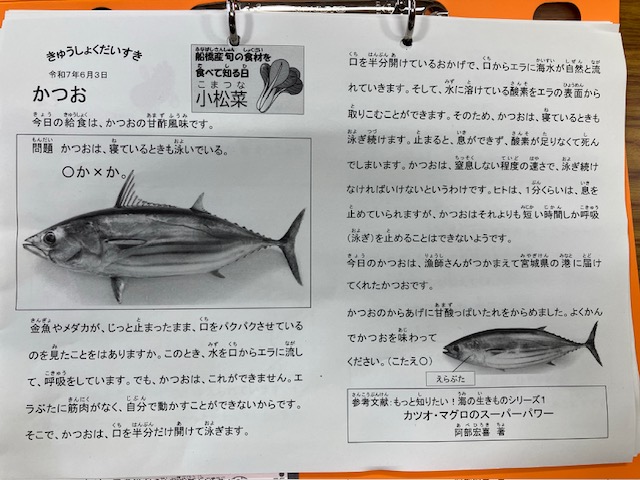 きゅうしょくだいすき
令和7年6月3日
かつお
船橋産旬の食材を
食べて知る日
こまつな
小松菜
今日の給食は、かつおの甘酢風味です。
問題 かつおは、寝ているときも泳いでいる。
○か×か。
金魚やメダカが、じっと止まったまま、口をパクパクさせている
のを見たことはありますか。このとき、水を口からエラに流し
て、呼吸をしています。でも、かつおは、これができません。エ
ラぶたに筋肉がなく、自分で動かすことができないからです。
そこで、かつおは、口を半分だけ開けて泳ぎます。
口を半分開けているおかげで、口からエラに海水が自然と流
れていきます。そして、水に溶けている酸素をエラの表面から
取りこむことができます。そのため、かつおは、寝ているときも
泳ぎ続けます。止まると、息ができず、酸素が足りなくて死ん
でしまいます。かつおは、窒息しない程度の速さで、泳ぎ続け
なければいけないというわけです。ヒトは、1分くらいは、息を
止めていられますが、かつおはそれよりも短い時間しか呼吸
(泳ぎ)を止めることはできないようです。
今日のかつおは、漁師さんがつかまえて宮城県の港に届け
てくれたかつおです。
かつおのからあげに甘酸っぱいたれをからめました。よくかん
でかつおを味わって
ください。(こたえ○)
えらぶた
参考文献:もっと知りたい!海の生きものシリーズ1
カツオ・マグロのスーパーパワー
阿部宏喜 著